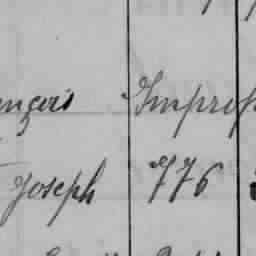 ançois Imprep
Joseph 776